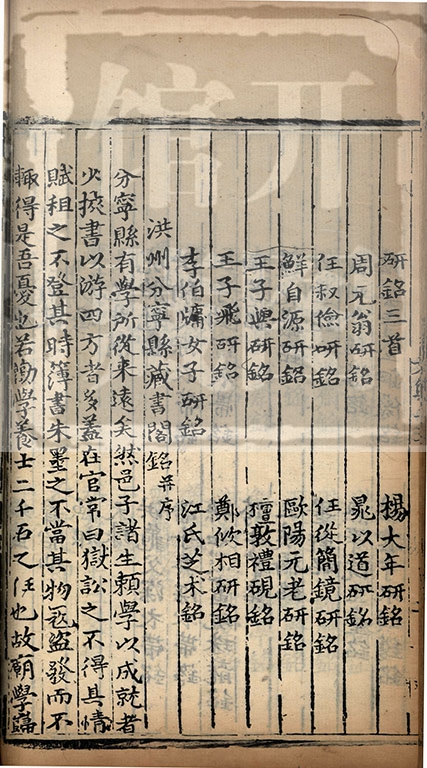 研銘三首　楊大年研銘
周元翁研銘　晁以道研銘
任叔儉研銘　任從簡鏡研銘
鮮自源研銘　歐陽元老研銘
王子輿研銘　檀敦禮硯銘
王子飛研銘　鄭攸相研銘
李伯牗女子研銘　江氏芝术銘
洪州分寧縣藏書閣銘并序
分寧縣有學所從来遠矣然邑子諸生頼學以成就者
少挾書以游四方者多蓋在官常曰獄訟之不得其情
賦租之不登其時簿書朱墨之不當其物冦盗發而不
輙得是吾憂也若勸學養士二千石之任也故廟學